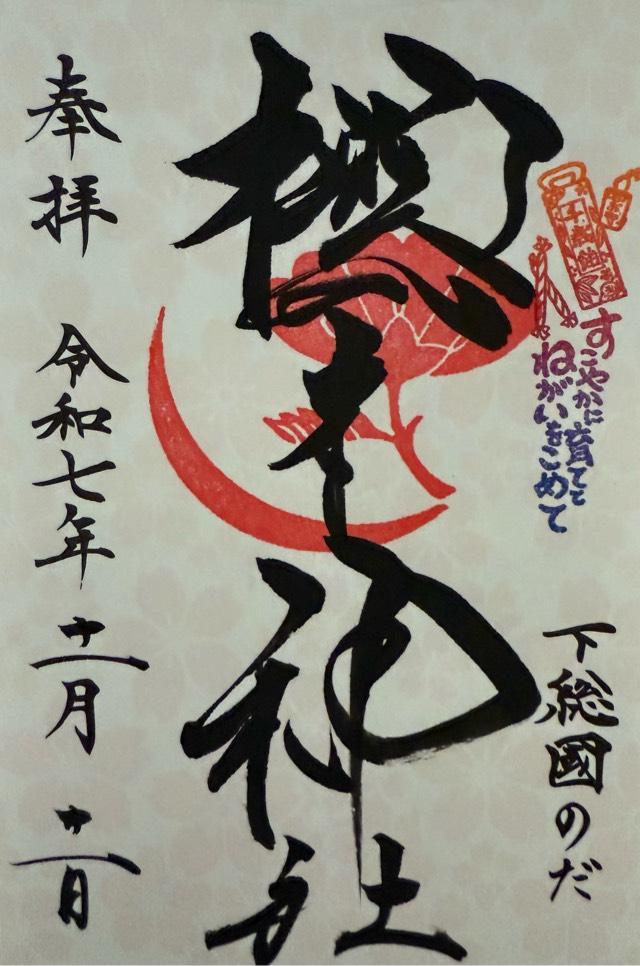 下総國のだ
千歳飴
すこやかに育てと
ねがいをこめて
櫻木神社
奉拝
令和七年十一月廿一日